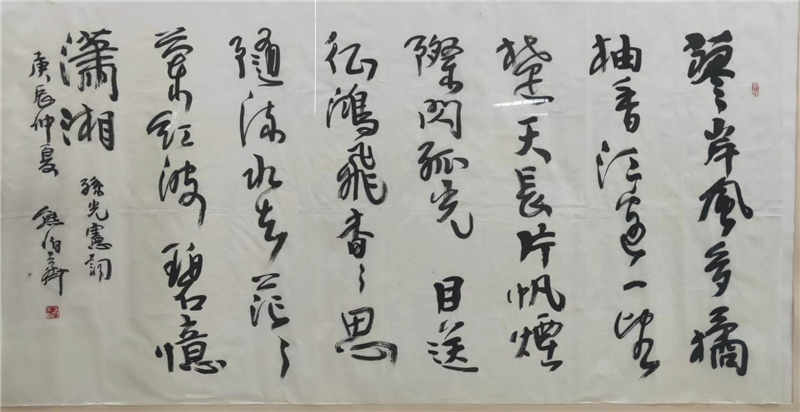 蓼岸風多橘
柚香江邊一望
楚天長片帆煙
際閃孤光 目送
征鴻飛杳〻思
隨流水去茫〻
蘭紅波碧憶
瀟湘
孫光憲詞
庚辰仲夏 熊伯齊